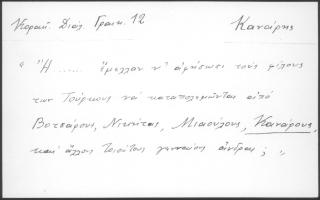 Νεοφύτ. Διάλ. Γραικ. 12 Κανάρης
"Ἢ ...... ἔμελλον ν' ἀφήσωσι τοὺς φίλους
των Τούρκους νὰ καταπολεμῶνται ἀπὸ
Βοτσάρους, Νικήτας, Μιαούλους, Κανάρους,
καὶ ἄλλους τοιούτους γενναίους ἄνδρας; "